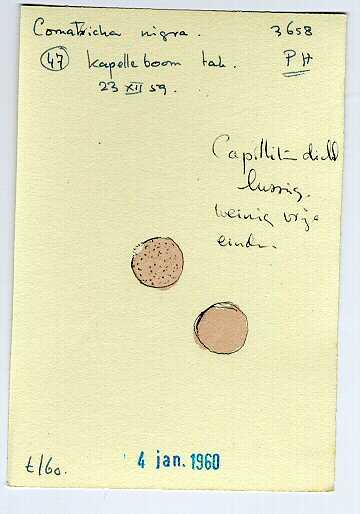 Comatricha nigra. 3658
47 Kapelleboom tak. PH
23 XII 59.
Capillitium dicht
lussig.
weinig vrije
einden.
t/60.
4 jan. 1960